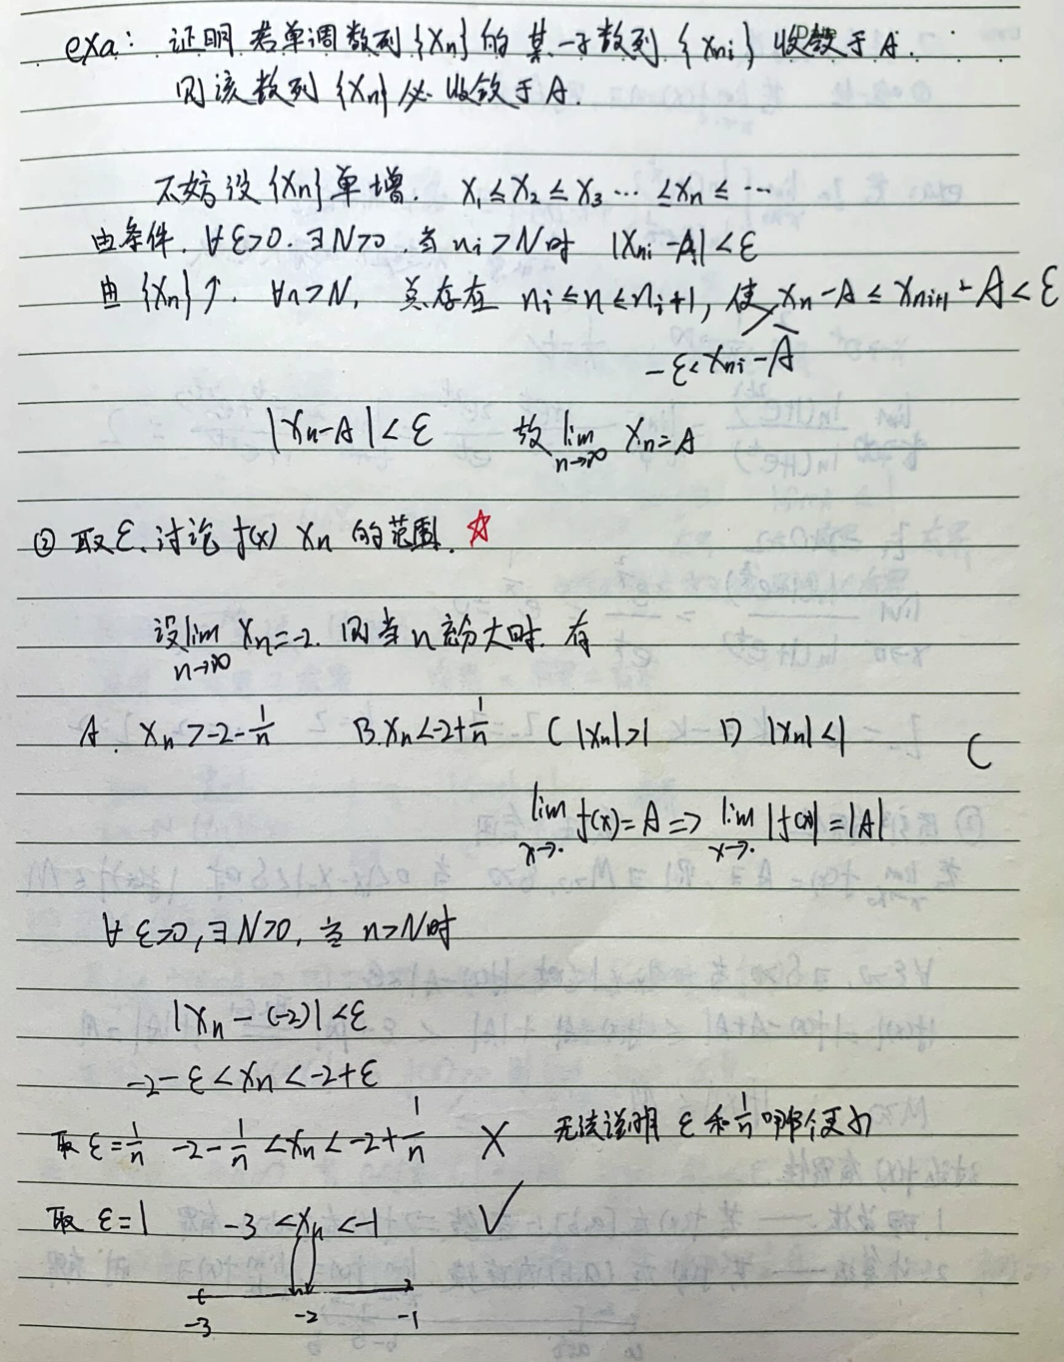 exa: 证明 若单调数列{Xn}的某一子数列{Xni}收敛于A.
则该数列{Xn}必收敛于A.
不妨设{Xn}单增. X₁≤X₂≤X₃…≤Xn≤…
由条件. ∀ε>0. ∃N>0 当ni>N时 |Xni-A|<ε
由{Xn}↑. ∀n>N, 总存在 ni≤n≤ni+1, 使 Xn-A≤Xni+1-A<ε
-ε<Xni-A
|Xn-A|<ε 故 lim n→∞ Xn=A
② 取ε.讨论f(x) Xn的范围. ☆
设lim n→∞ Xn=-2. 则当n充分大时. 有
A. Xn>-2-1/n B.Xn<-2+1/n C |Xn|>1 D |Xn|<1 C
lim x→· f(x)=A => lim x→· |f(x)|=|A|
∀ε>0,∃N>0, 当n>N时
|Xn-(-2)|<ε
-2-ε<Xn<-2+ε
取ε=1/n -2-1/n<Xn<-2+1/n × 无法说明ε和1/n哪个更小
取ε=1 -3<Xn<-1 √
-3 -2 -1